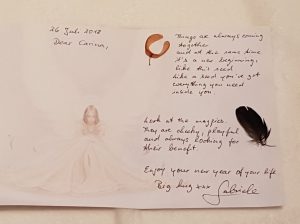 26 Juli 2018
Dear Carina,
Things are always coming
together
and at the same time
it's a new beginning,
like this seed
Like a seed you've got
everything you need
inside you.
Look at the magpies.
They are cheeky, playful
and always looking for
their benefit.
Enjoy your new year of your life
Big hug xxx Gabriele